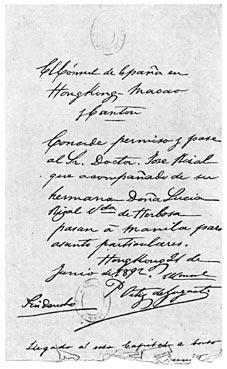 El Cónsul de España en
Hong Kong - Macao
y Canton
Concede permiso y pase
al Sr. Doctor José Rizal
que acompañado de su
hermana Doña Lucia
Rizal Vda de Herbosa
pasan á manila para
asunto particulares.
Hong Kong 21 de
Junio de 1892.
P. Ortiz de Zugasti
Sin derecho
Llegado al esta Capital a bordo